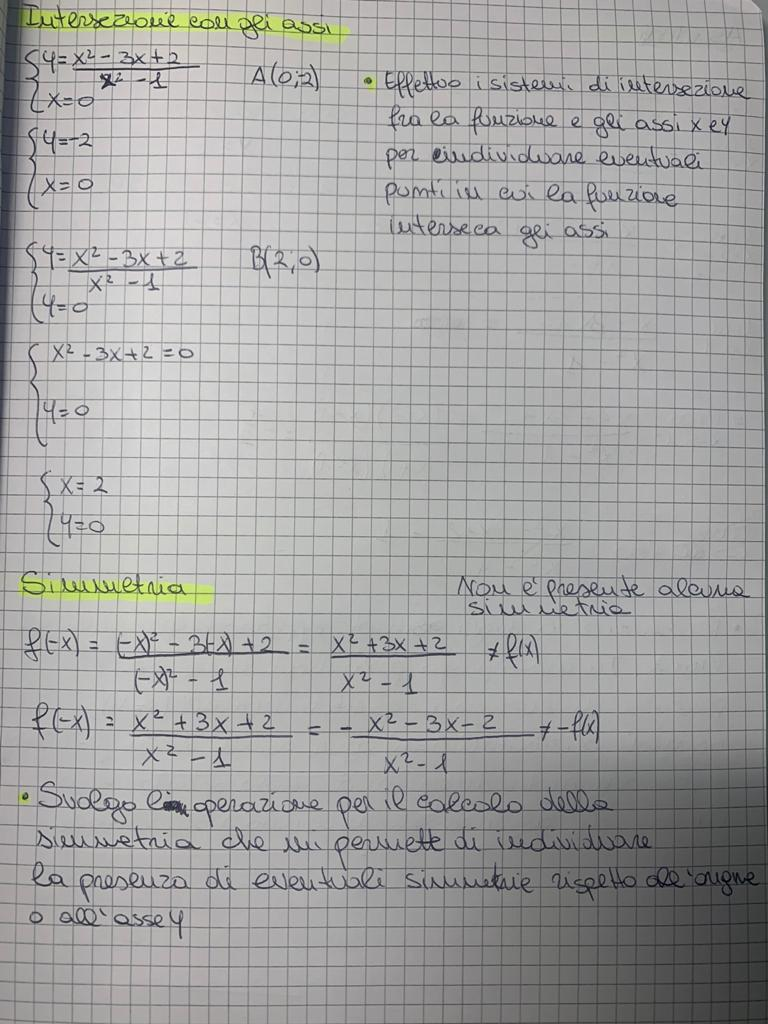 Intersezione con gli assi
y = x² - 3x + 2 / x² - 1
x = 0
A(0;-2)
y = -2
x = 0
• Effettuo i sistemi di intersezione
fra la funzione e gli assi x e y
per individuare eventuali
punti in cui la funzione
interseca gli assi
y = x² - 3x + 2 / x² - 1
y = 0
B(2;0)
x² - 3x + 2 = 0
y = 0
x = 2
y = 0
Simmetria
Non è presente alcuna
simmetria
f(-x) = (-x)² - 3(-x) + 2 / (-x)² - 1 = x² + 3x + 2 / x² - 1 ≠ f(x)
f(-x) = x² + 3x + 2 / x² - 1 = - x² - 3x - 2 / x² - 1 ≠ -f(x)
• Svolgo operazione per il calcolo della
simmetria che mi permette di individuare
la presenza di eventuali simmetrie rispetto all'origine
o all'asse y